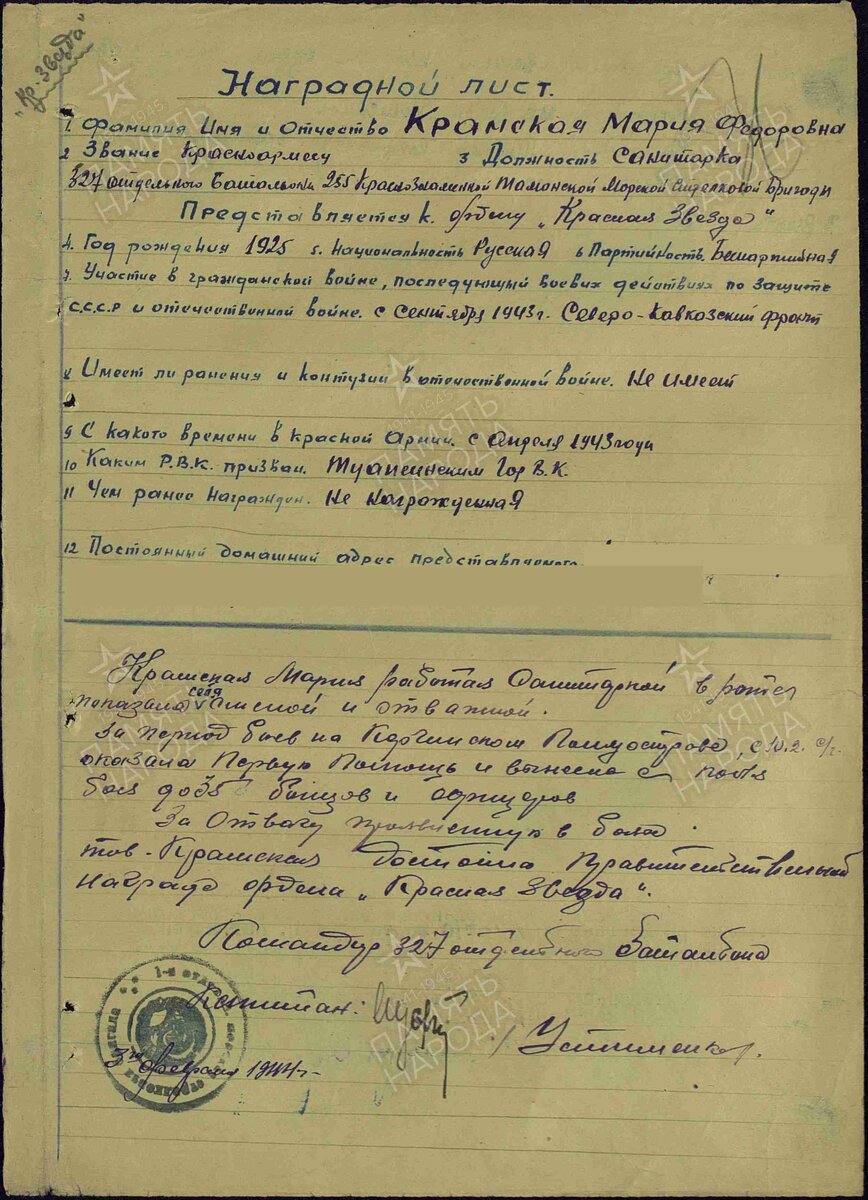 "Кр. Звезда"
Наградной лист.
1. Фамилия Имя и Отчество Крамская Мария Федоровна
2 Звание Красноармеец 3 Должность Санитарка
327 отдельного Батальона 255 Краснознаменной Таманской Морской Стрелковой Бригады
Представляется к. ордену „Красная Звезда"
4. Год рождения 1925 5. Национальность Русская 6 Партийность. Беспартийная
7. Участие в гражданской войне, последующий боевых действиях по защите
С.С.С.Р и отечественной войне. с Сентября 1943 г. Северо-Кавказский фронт
8 Имеет ли ранения и контузии в отечественной войне. Не имеет
9 С какого времени в Красной Армии. с Апреля 1943 года
10 Каким Р.В.К. призван. Туапсинским Гор В.К.
11 Чем ранее награжден. Не награжденная
12 Постоянный домашний адрес представляемого.
Крамская Мария работая Санитаркой в роте
показала себя смелой и отважной.
За период боев на Керченском Полуострове, с 10.2. с/г.
оказала Первую Помощь и вынесла с поля
боя до 35 бойцов и офицеров
За Отвагу проявленную в боях
тов. Крамская достойна Правительственной
награде ордена „Красная Звезда".
Командир 327 отдельного Батальона
Капитан:
/Устименко/.
февраля 1944 г.
ПАМЯТЬ НАРОДА
1941-1945